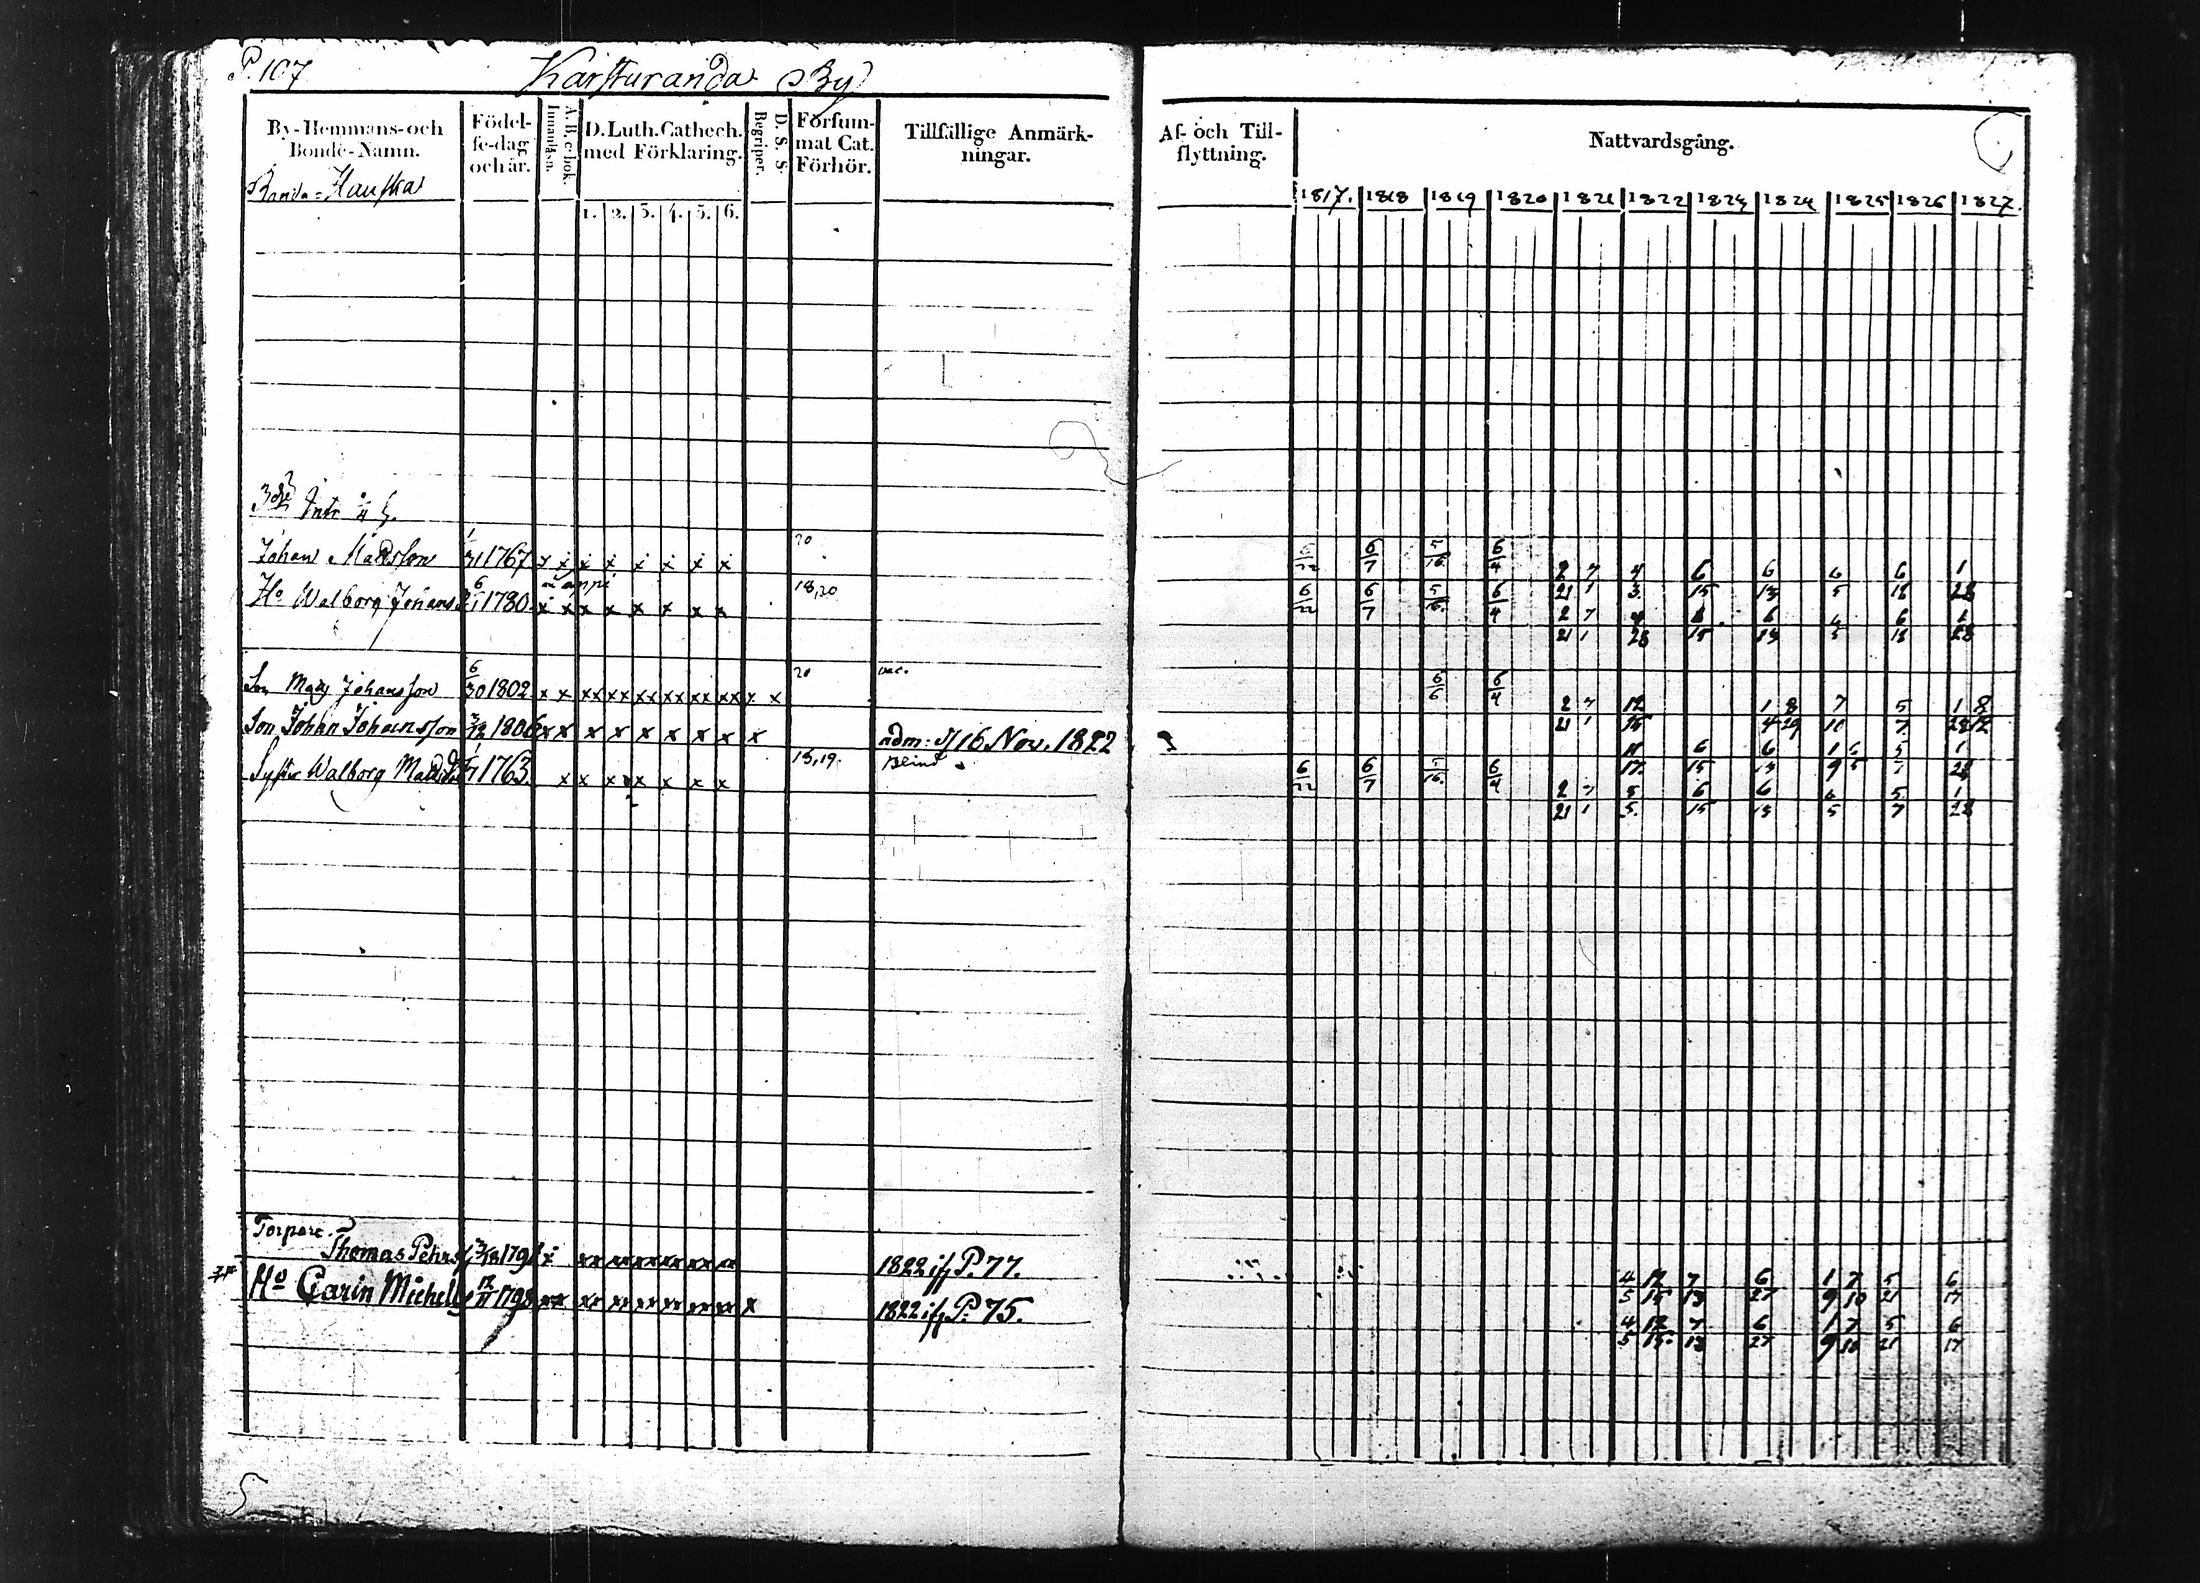 P. 107 Karsturanda By
By-Hemmans-och Bonde-Namn.
Födel-se-dag och år.
A. B. c-bok. Innanläsn.
D. Luth. Cathech. med Förklaring.
Begriper. D. S. S.
Försum-mat Cat. Förhör.
Tillfällige Anmärk-ningar.
Af- och Till-flyttning.
Nattvardsgång.
Hauska
1. 2. 3. 4. 5. 6.
1817. 1818 1819 1820 1821 1822 1823 1824 1825 1826 1827.
Johan Madsson 1/31 1767 x x x x x x x x 20 6/22 6/7 5/16 6/4 2/21 7/1 4/3 6/15 6/13 6/5 6/18 1/28
Ho Walborg Johans 1780 x x x x x x x x 18,20 6/22 6/7 5/16 6/4 2/21 7/1 4/28 6/15 6/13 6/5 6/18 1/28
Son Mats Johansson 6/30 1802 x x xx xx xx xx xx xx x x 20 vac. 6/6 6/4 2/21 7/1 12/15 1/4 8/29 7/10 5/7 1/28 8/12
Son Johan Johansson 1806 x x x x x x x x x adm: d 16 Nov. 1822 11/17 6/15 6/13 1/9 6/5 5/7 1/28
Syster Walborg Mads 1763. x x x x x x x 18,19. Blind 6/22 6/7 5/16 6/4 2/21 7/1 5/5 6/15 6/13 6/5 5/7 1/28
Torpare.
Thomas Pehrs xx xx xx xx xx xx 1822 ifr P. 77. 4/5 12/15 7/13 6/27 1/9 7/10 5/21 6/17
Ho Carin Michels 12/11 1798 xx xx xx xx xx xx xx x 1822 ifr P. 75. 4/5 12/15 7/13 6/27 1/9 7/10 5/21 6/17